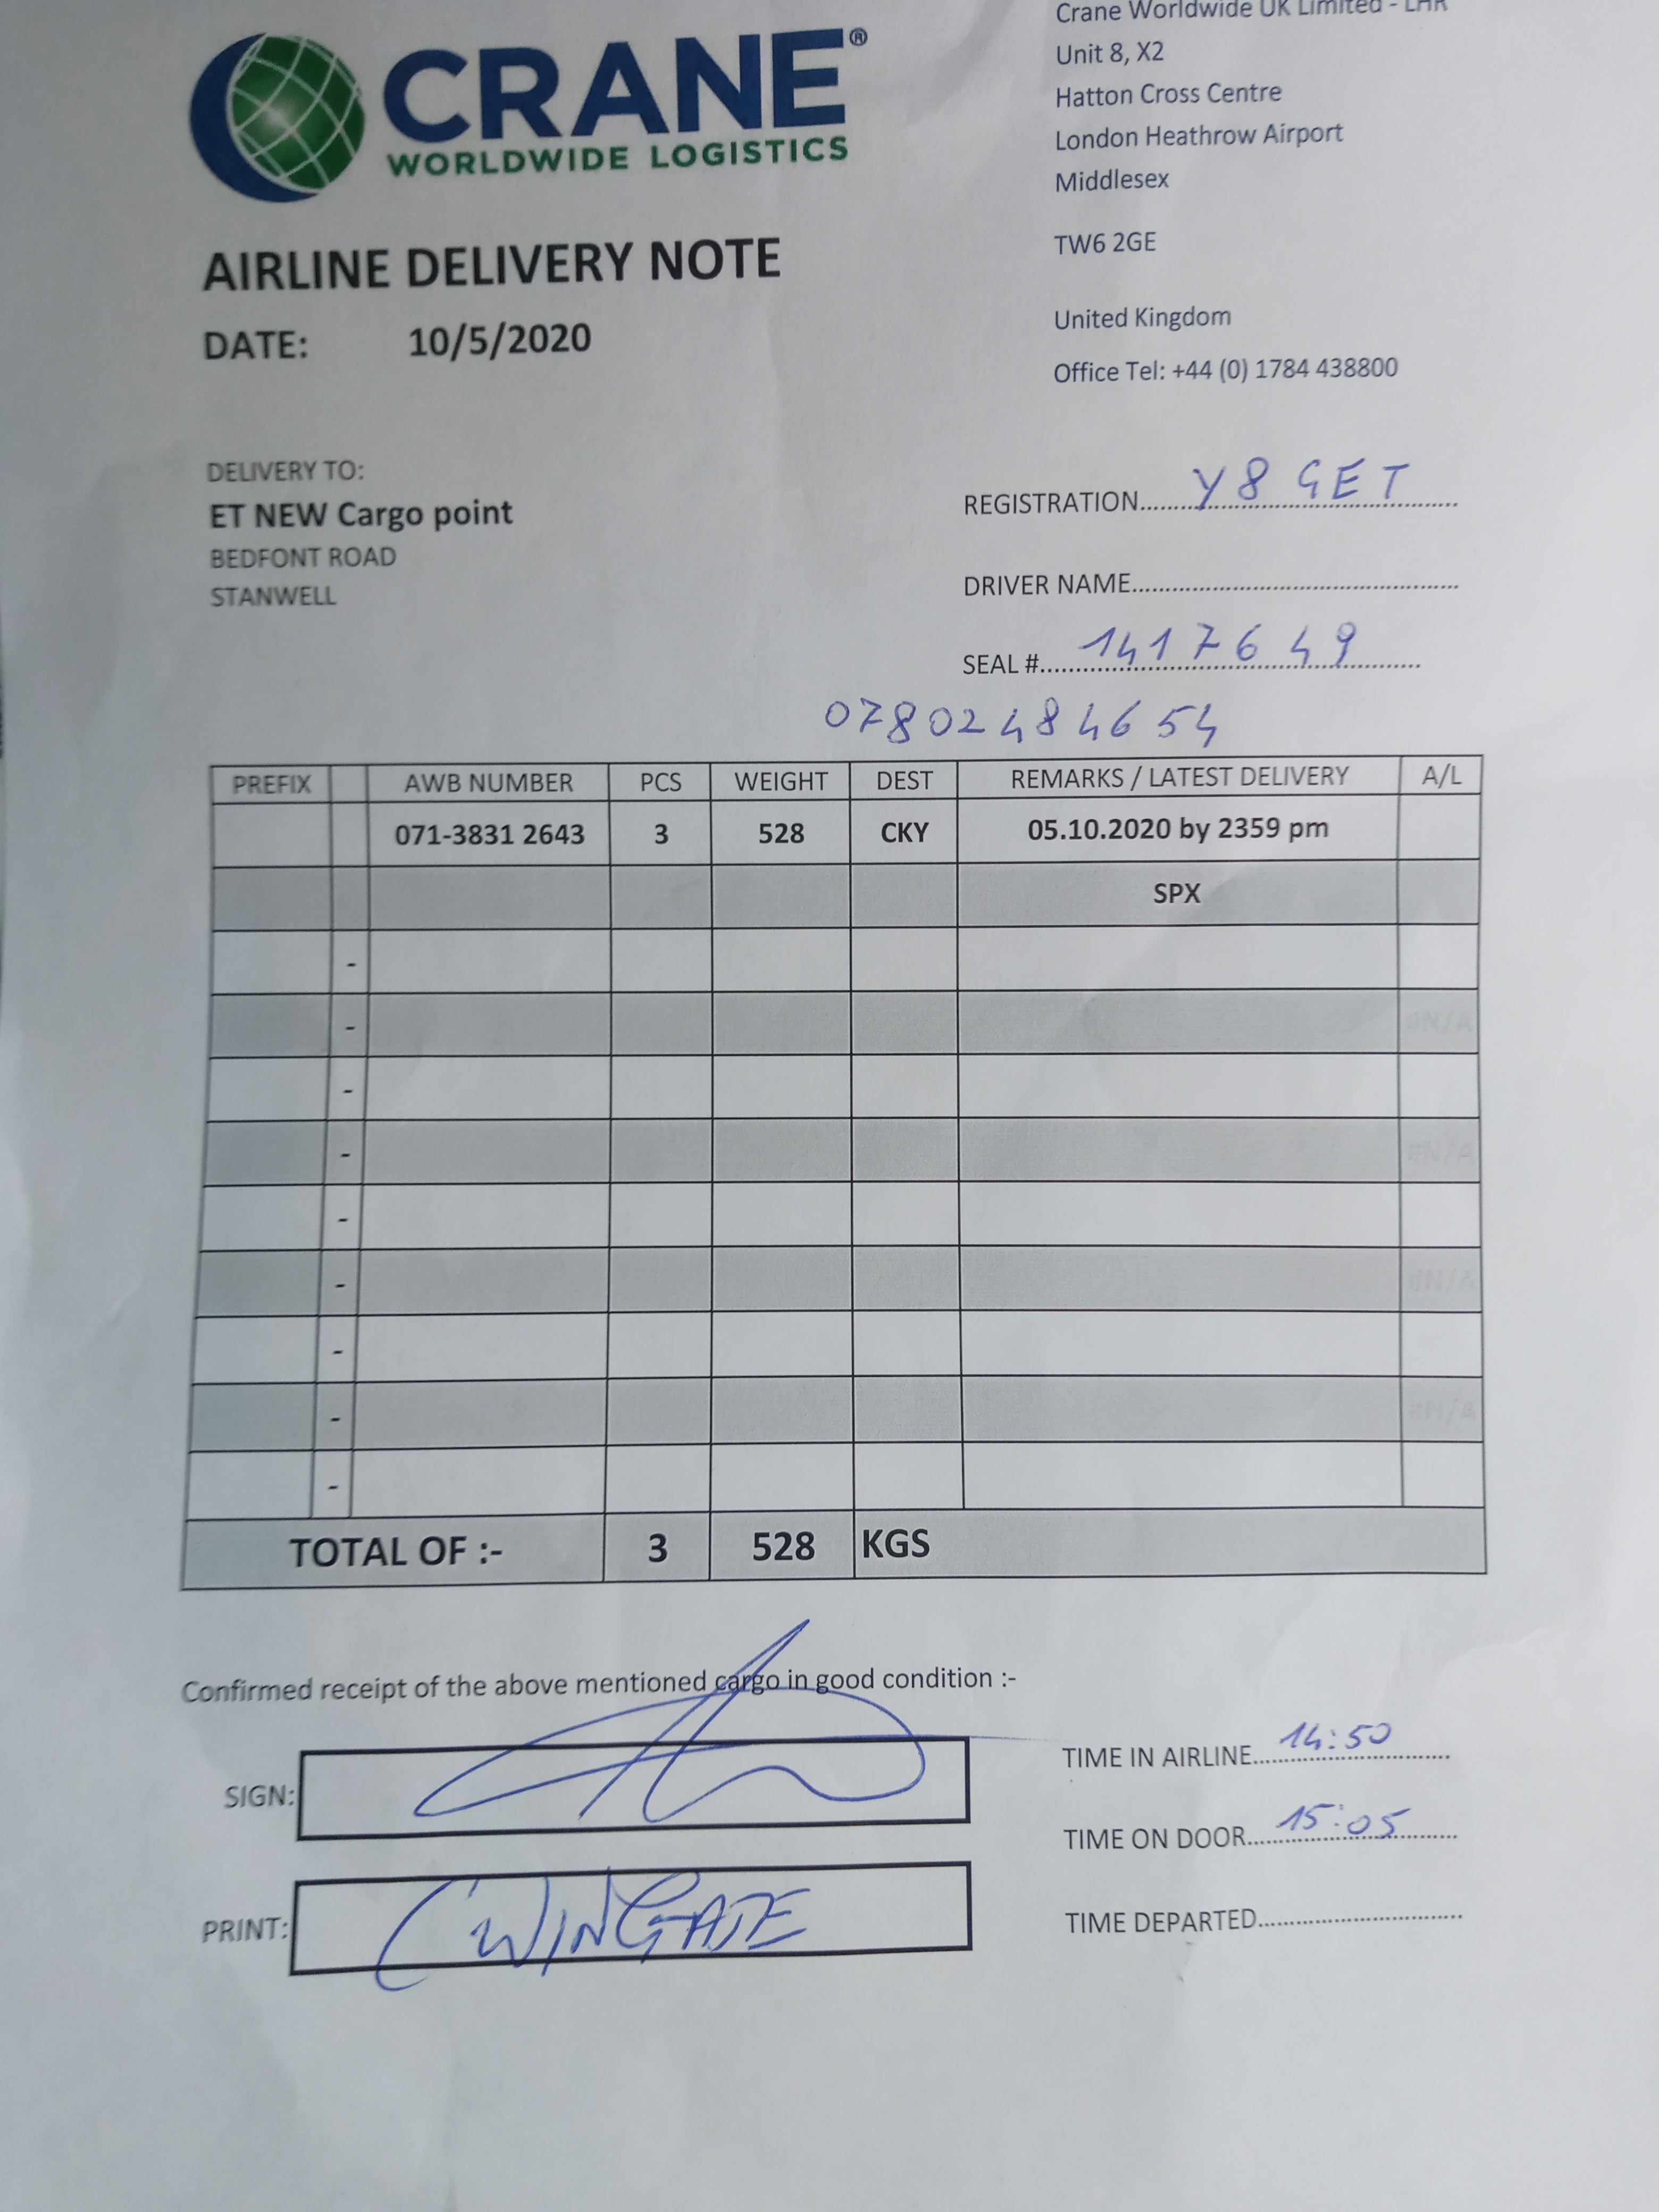 CRANE®
WORLDWIDE LOGISTICS
Crane Worldwide UK Limited - LHR
Unit 8, X2
Hatton Cross Centre
London Heathrow Airport
Middlesex
TW6 2GE
United Kingdom
Office Tel: +44 (0) 1784 438800
AIRLINE DELIVERY NOTE
DATE: 10/5/2020
DELIVERY TO:
ET NEW Cargo point
BEDFONT ROAD
STANWELL
REGISTRATION Y8 GET
DRIVER NAME
SEAL # 1417649
07802484654
PREFIX AWB NUMBER PCS WEIGHT DEST REMARKS / LATEST DELIVERY A/L
071-3831 2643 3 528 CKY 05.10.2020 by 2359 pm
SPX
-
- #N/A
-
- #N/A
-
- #N/A
-
- #N/A
-
TOTAL OF :- 3 528 KGS
Confirmed receipt of the above mentioned cargo in good condition :-
SIGN:
PRINT: C WINGATE
TIME IN AIRLINE 14:50
TIME ON DOOR 15:05
TIME DEPARTED